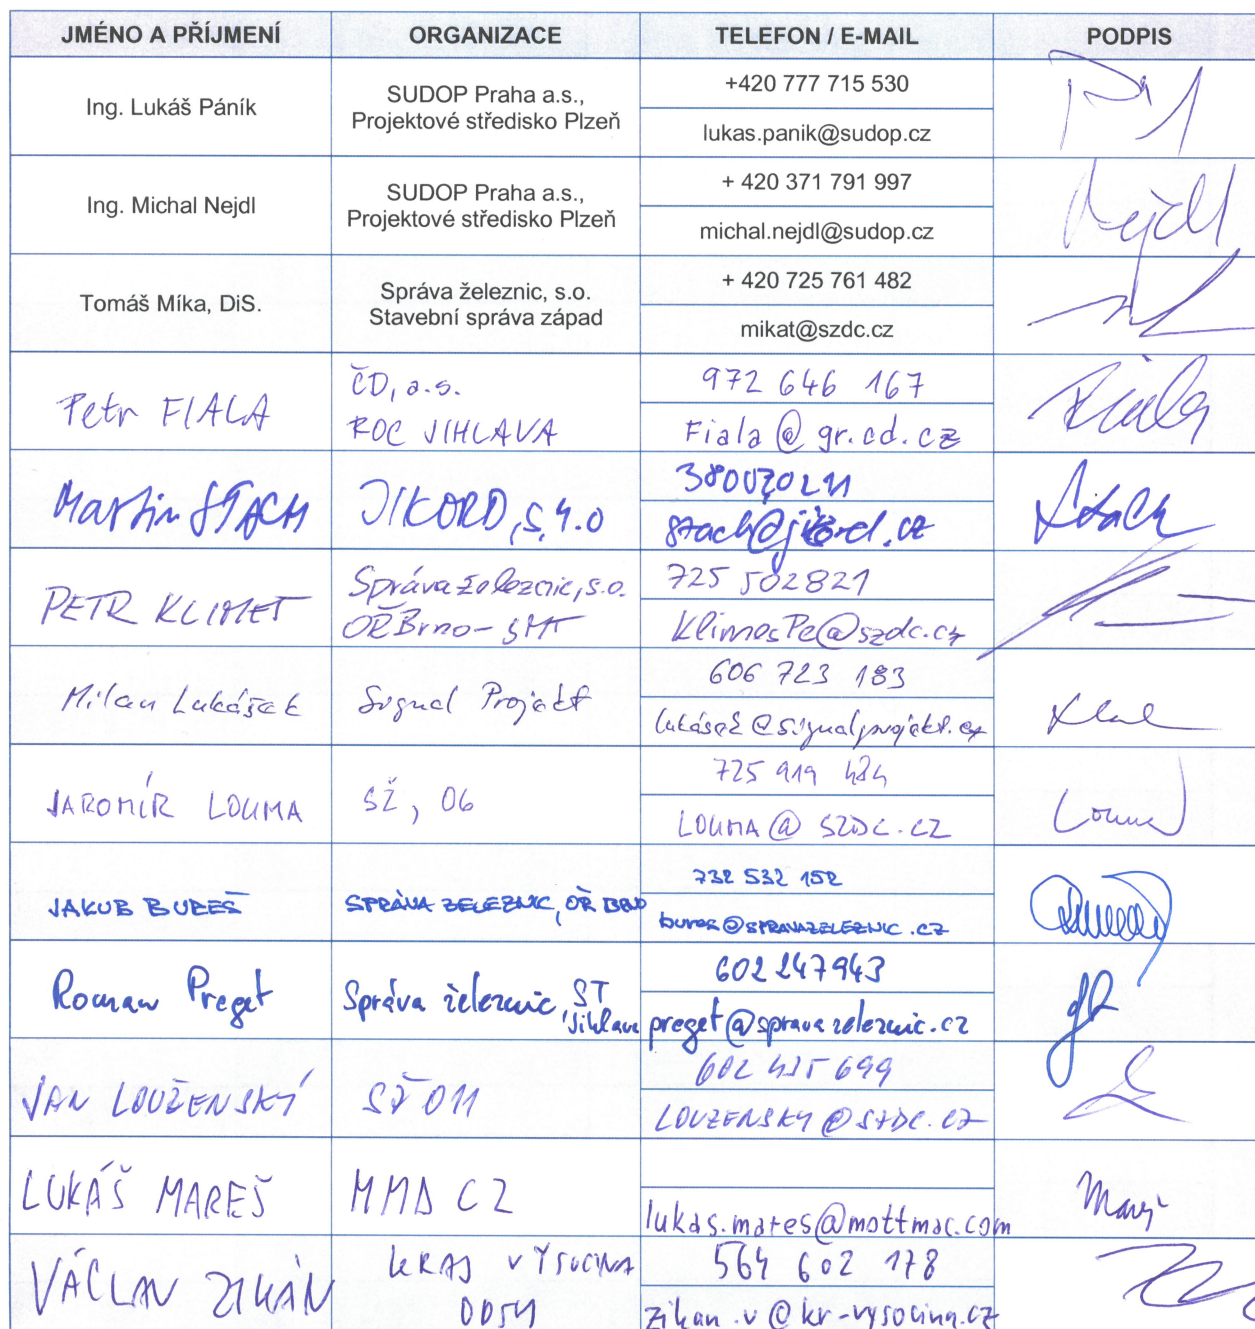 JMÉNO A PŘÍJMENÍ ORGANIZACE TELEFON / E-MAIL PODPIS
Ing. Lukáš Páník
SUDOP Praha a.s.,
Projektové středisko Plzeň
+420 777 715 530
lukas.panik@sudop.cz
Ing. Michal Nejdl
SUDOP Praha a.s.,
Projektové středisko Plzeň
+ 420 371 791 997
michal.nejdl@sudop.cz
Nejdl
Tomáš Míka, DiS.
Správa železnic, s.o.
Stavební správa západ
+ 420 725 761 482
mikat@szdc.cz
Petr FIALA
ČD, a.s.
ROC JIHLAVA
972 646 167
Fiala@gr.cd.cz
Fiala
Martin ŠTACH
JIKORD, s.r.o
stach@jikord.cz
Štach
PETR
Správa železnic, s.o.
OŘ Brno - SMT
725 502821
Milan Lukášek
Signal Projekt
606 723 183
lukásek@signalprojekt.cz
JAROMÍR LOUMA
SŽ, O6
725 919 484
LOUMA@SZDC.CZ
Louma
JAKUB BUREŠ
SPRÁVA ŽELEZNIC, OŘ BRNO
732 532 152
bures@SPRAVAZELEZNIC.CZ
Roman Preget
Správa železnic, ST
Jihlava
602 247943
preget@spravazeleznic.cz
JAN LOUŽENSKÝ
SŽ O11
602 435 699
LOUZENSKY@SZDC.CZ
LUKÁŠ MAREŠ
MMD CZ
lukas.mares@mottmac.com
Mareš
VÁCLAV ZIKÁN
KRAJ VYSOČINA
ODSH
564 602 178
zikan.v@kr-vysocina.cz